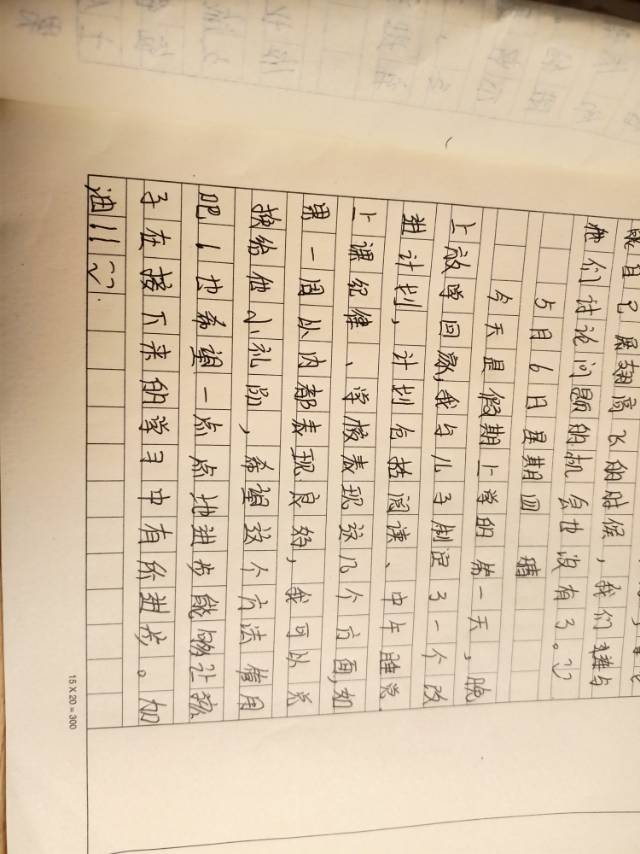 就自己展翅高飞的时候，我们想与
他们讨论问题的机会也没有了。
5月6日星期四 晴
今天是假期上学的第一天，晚
上放学回家，我与儿子制定了一个改
进计划，计划包括阅读、中午睡觉、
上课纪律、学校表现这几个方面，如
果一周以内都表现良好，我可以兑
换给他小礼物，希望这个方法管用
吧！也希望一点点地进步能够让孩
子在接下来的学习中有所进步。加
油！！
15×20=300